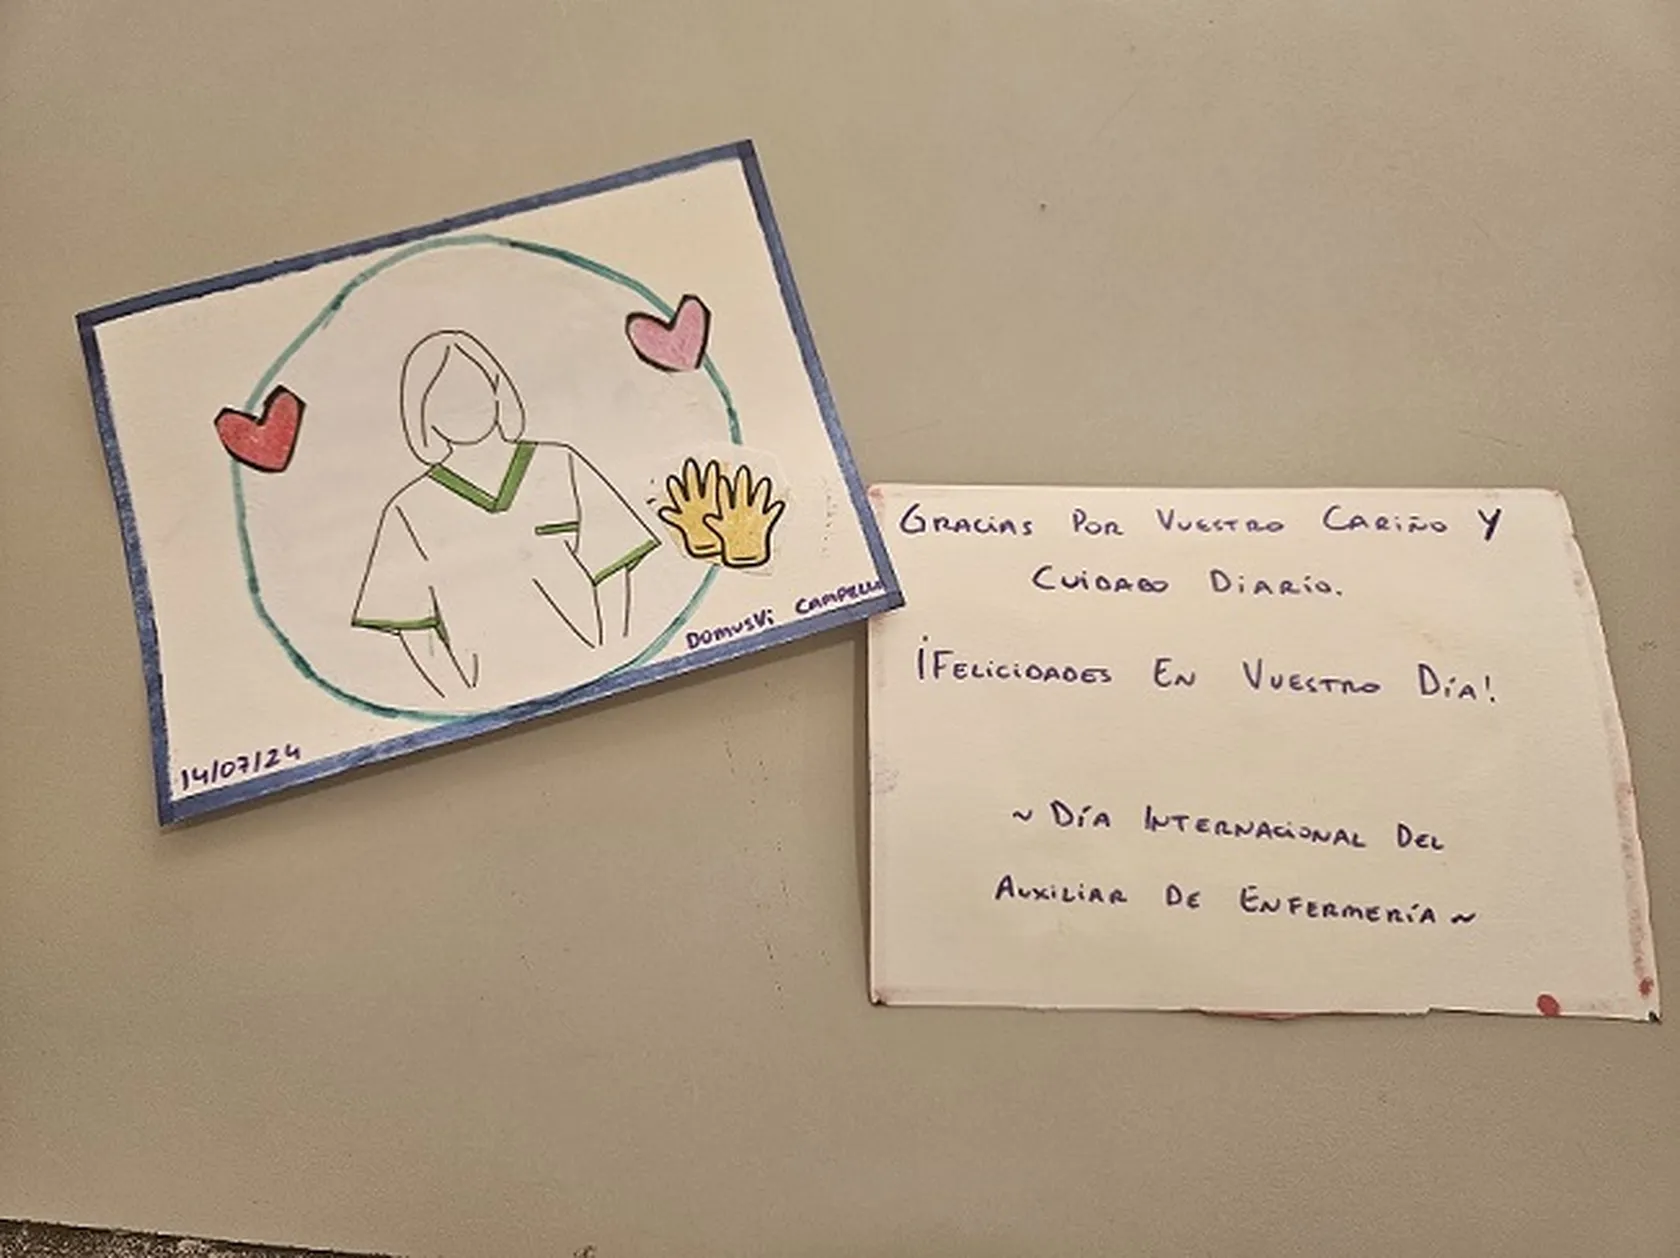 14/07/24
DomusVi Campello
Gracias Por Vuestro Cariño Y
Cuidado Diario.
¡Felicidades En Vuestro Día!
~ Día Internacional Del
Auxiliar De Enfermería ~